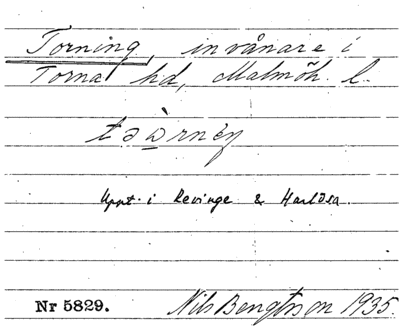 Torning, invånare i
Torna hd, Malmöh. l.
Uppt. i Revinge & Harlösa.
Nr 5829.
Nils Bengtsson 1935.